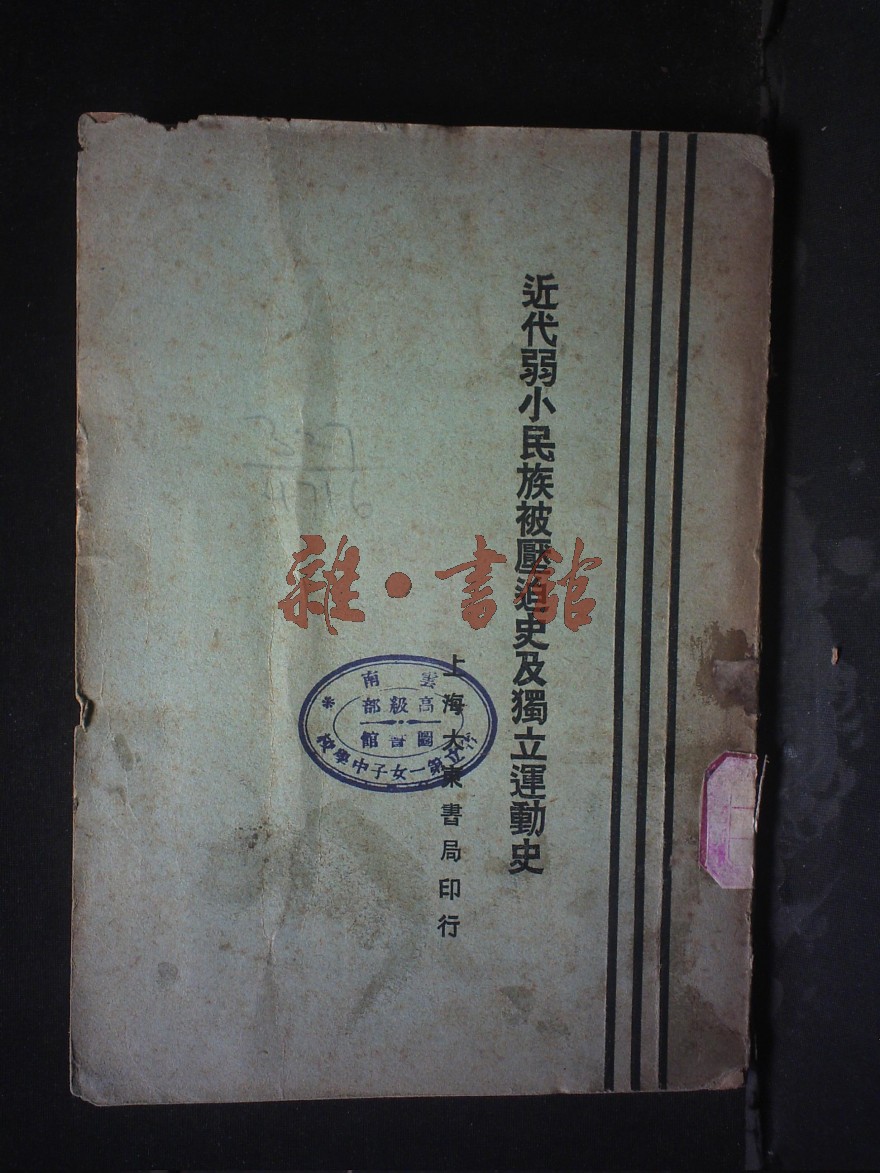 近代弱小民族被壓迫史及獨立運動史
上海大東書局印行
雲南
立第一女子中學校
高級部
圖書館
雜·書館